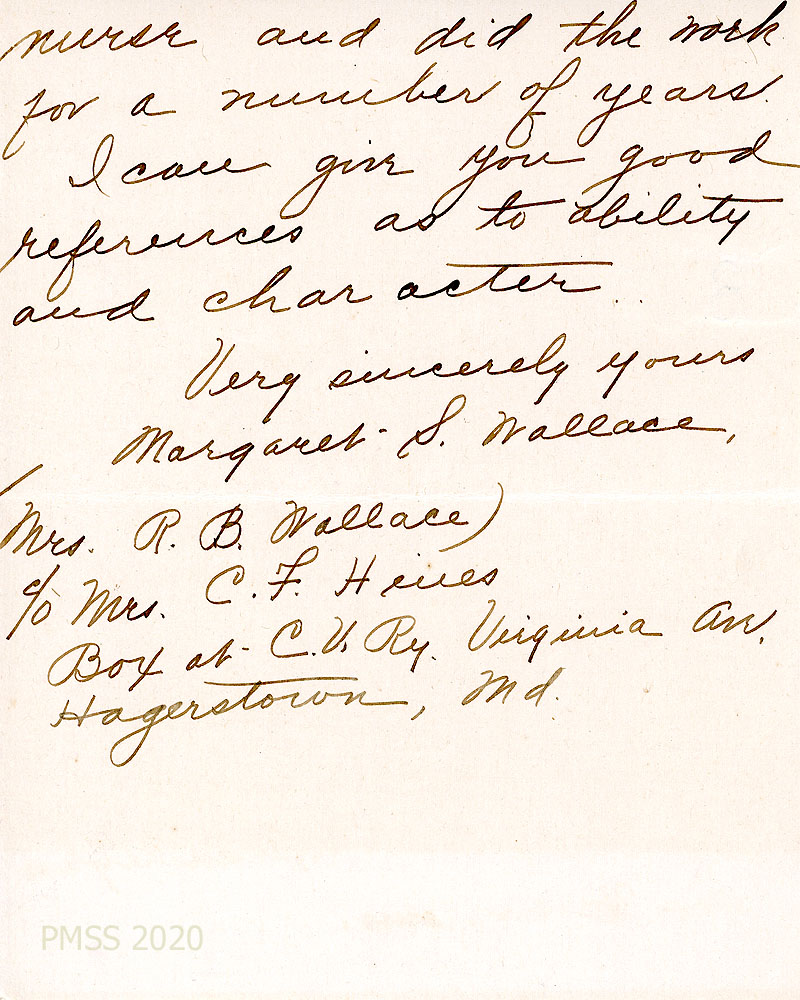 nurse and did the work
for a number of years.
I can give you good
references as to ability
and character.
Very sincerely yours
Margaret S. Wallace,
(Mrs. R. B. Wallace)
c/o Mrs. C. F. Hines
Box at C.V. Ry. Virginia Ave.
Hagerstown, Md.
PMSS 2020